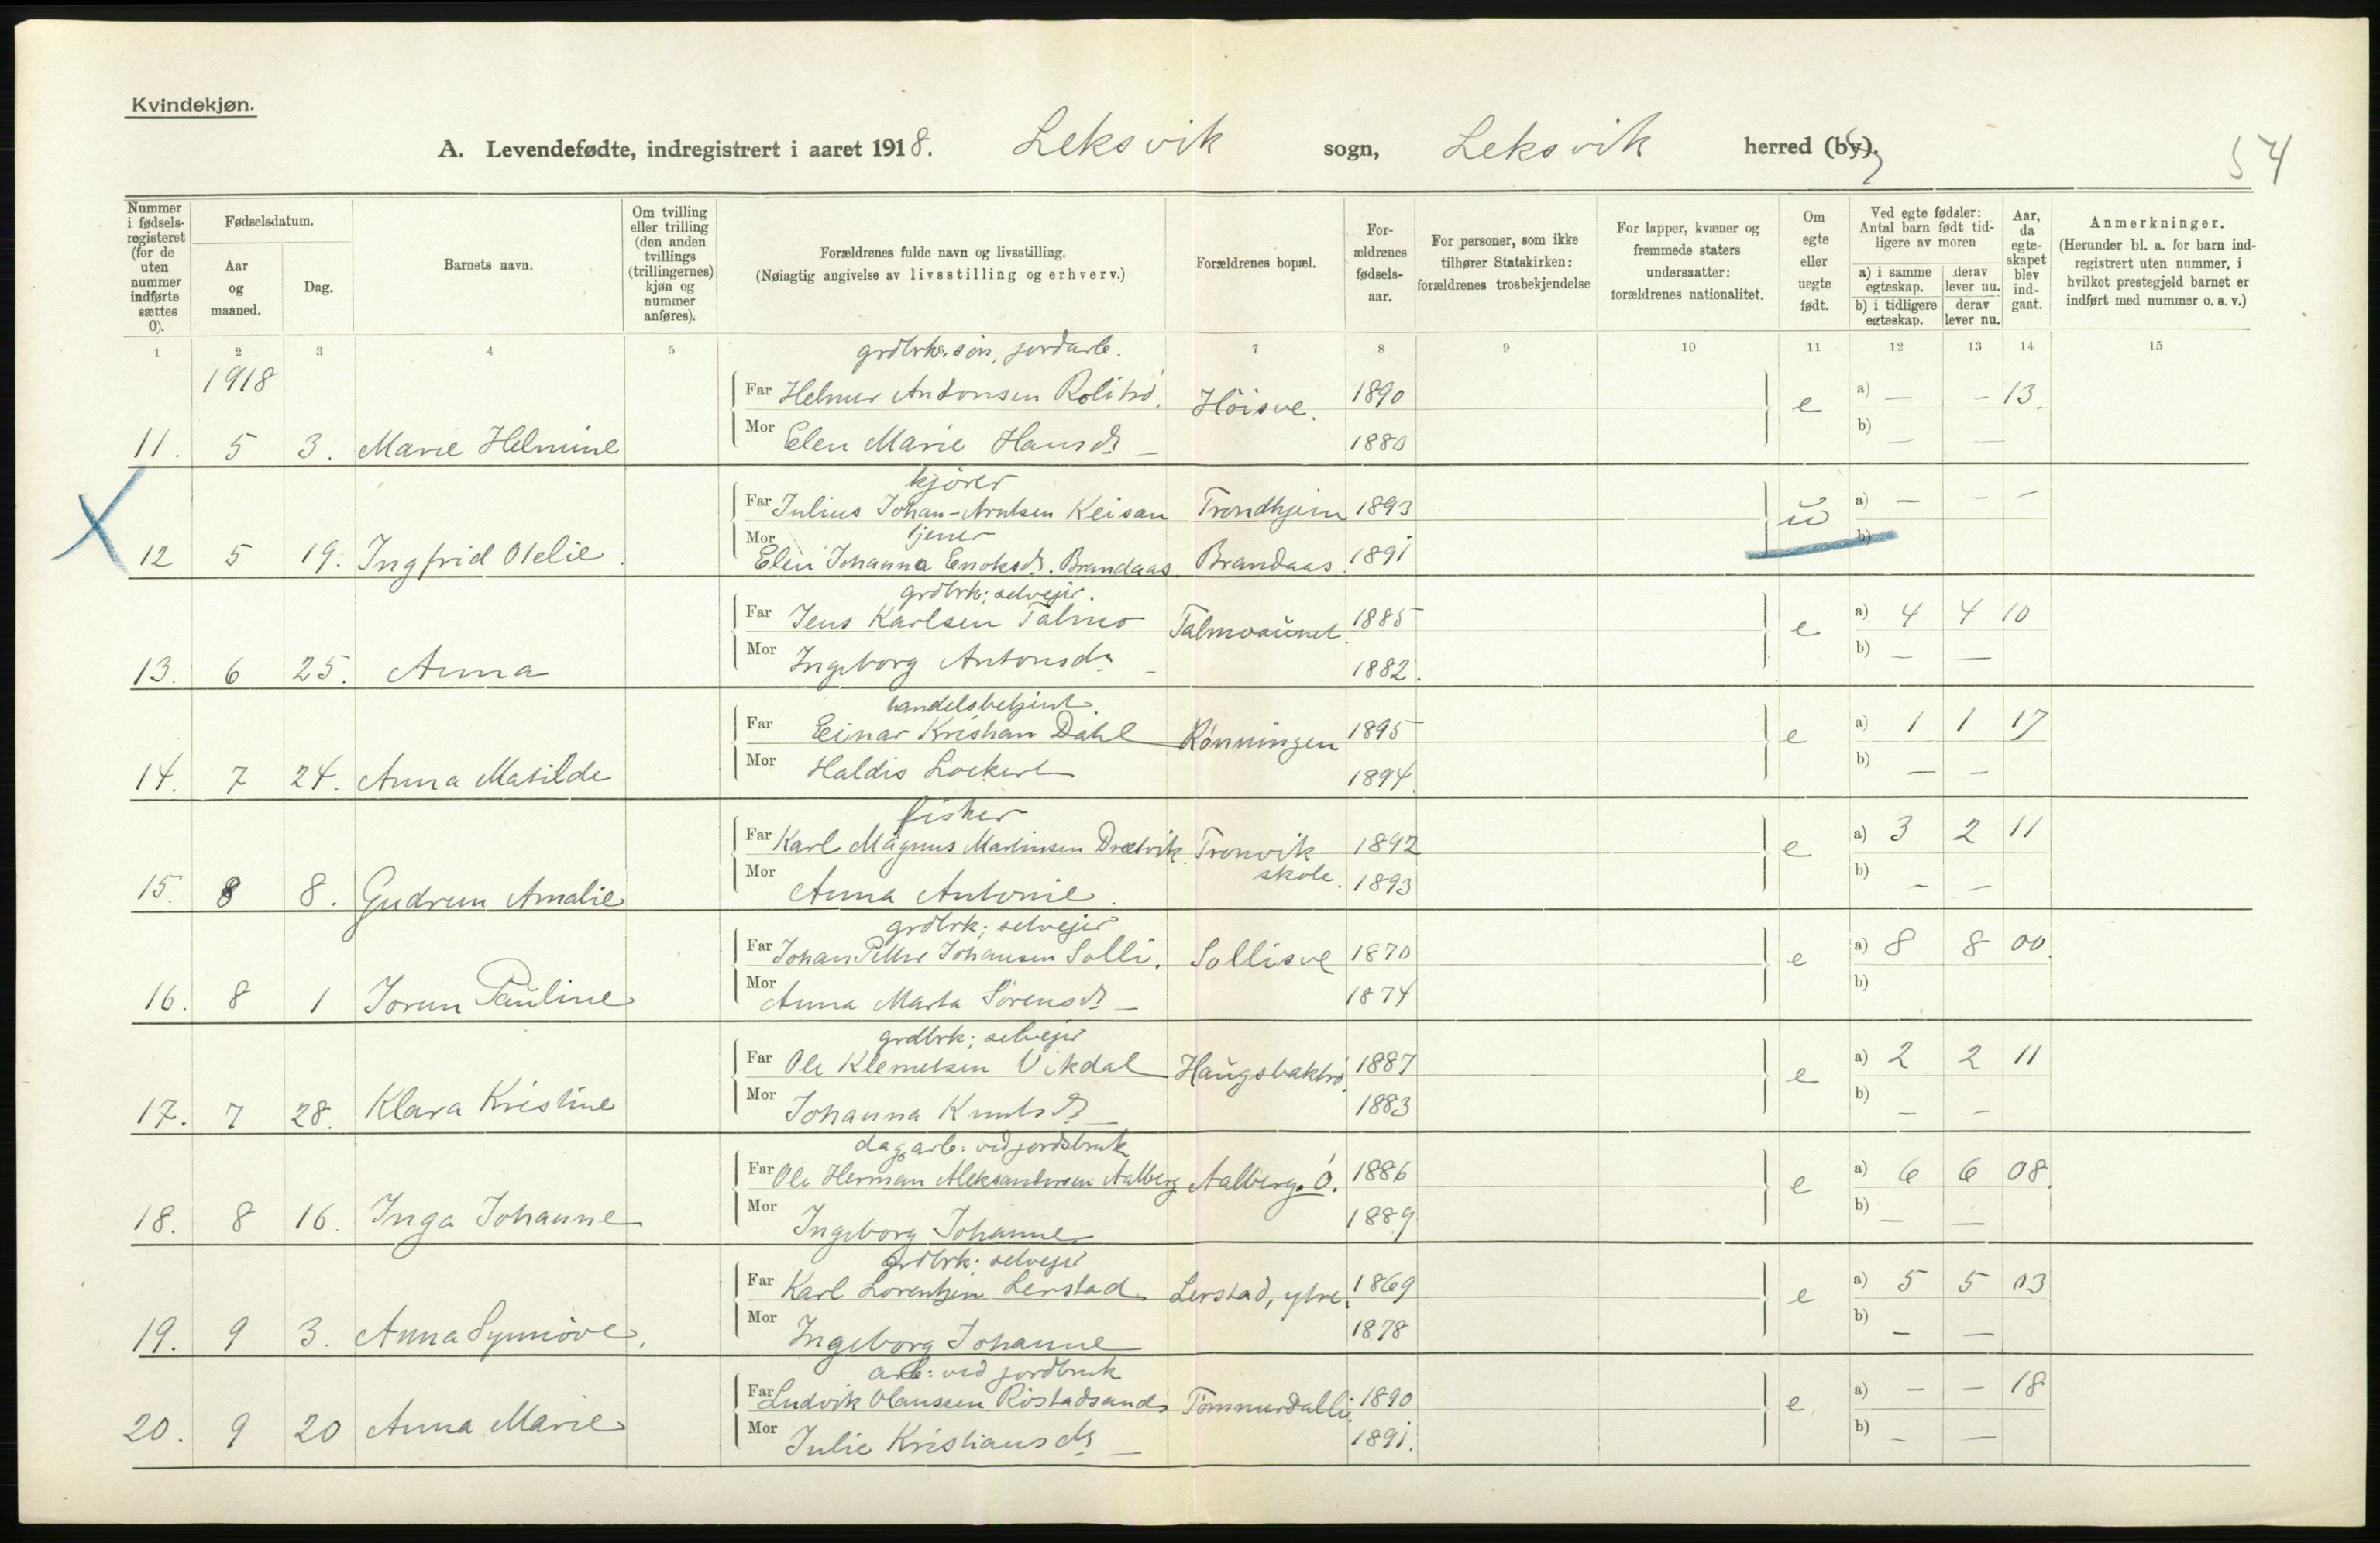 Kvindekjøn.
A. Levendefødte, indregistrert i aaret 1918. Leksvik sogn, Leksvik herred (by).
54
Nummer i fødselsregisteret (for de uten nummer indførte sættes 0).
Fødselsdatum.
Aar og maaned.
Dag.
Barnets navn.
Om tvilling eller trilling (den anden tvillings (trillingernes) kjøn og nummer anføres).
Forældrenes fulde navn og livsstilling.
(Nøiagtig angivelse av livsstilling og erhverv.)
Forældrenes bopæl.
Forældrenes fødselsaar.
For personer, som ikke tilhører Statskirken: forældrenes trosbekjendelse
For lapper, kvæner og fremmede staters undersaatter: forældrenes nationalitet.
Om egte eller uegte født.
Ved egte fødsler: Antal barn født tidligere av moren
a) i samme egteskap. derav lever nu.
b) i tidligere egteskap. derav lever nu.
Aar, da egteskapet blev indgaat.
Anmerkninger.
(Herunder bl. a. for barn indregistrert uten nummer, i hvilket prestegjeld barnet er indført med nummer o. s. v.)
1 2 3 4 5 7 8 9 10 11 12 13 14 15
1918
grdbrks. søn, jordarb.
Far Helmer Antonsen Rolitrø. Höisve. 1890 e a) — - 13.
11. 5 3. Marie Helmine Mor Elen Marie Hansdr — 1880 b) — —
kjører
Far Julius Johan Arntsen Keisan Trondhjem 1893 u a) — - -
tjener
12 5 19. Ingfrid Otelie. Mor Elen Johanna Enoksdr. Brandaas Brandaas 1891 b)
grdbrk; selvejer.
Far Jens Karlsen Talmo Talmoaunet 1885 e a) 4 4 10
13. 6 25. Anna Mor Ingeborg Antonsdr — 1882. b) — —
handelsbetjent.
Far Einar Kristian Dahl Rønningen 1895 e a) 1 1 17
14. 7 24. Anna Matilde Mor Haldis Lockert 1894. b) — —
fisker
Far Karl Magnus Martinsen Dretvik. Tronvik skole. 1892 e a) 3 2 11
15. 8 8. Gudrun Amalie Mor Anna Antonie. 1893 b) — —
grdbrk; selvejer
Far Johan Petter Johansen Solli. Sollisve 1870 e a) 8 8 00.
16. 8 1 Jorun Pauline Mor Anna Marta Sørensdr — 1874 b)
grdbrk; selvejer
Far Ole Klemetsen Vikdal Haugsbaktrø. 1887 e a) 2 2 11
17. 7 28. Klara Kristine Mor Johanna Knutsdr — 1883 b) — —
dagarb: ved jordsbruk
Far Ole Herman Aleksandersen Aalberg Aalberg. Ö. 1886 e a) 6 6 08.
18. 8 16. Inga Johanne Mor Ingeborg Johanne 1889 b) — —
grdbrk; selvejer
Far Karl Lorentsen Lerstad Lerstad, ytre. 1869 e a) 5 5 03
19. 9 3. Anna Synnöve. Mor Ingeborg Johanne 1878 b) — —
arb: ved jordbruk
Far Ludvik Olaussen Röstadsand Tömmerdalli. 1890 e a) — — 18
20. 9 20 Anna Marie Mor Julie Kristiansdr — 1891. b) — —